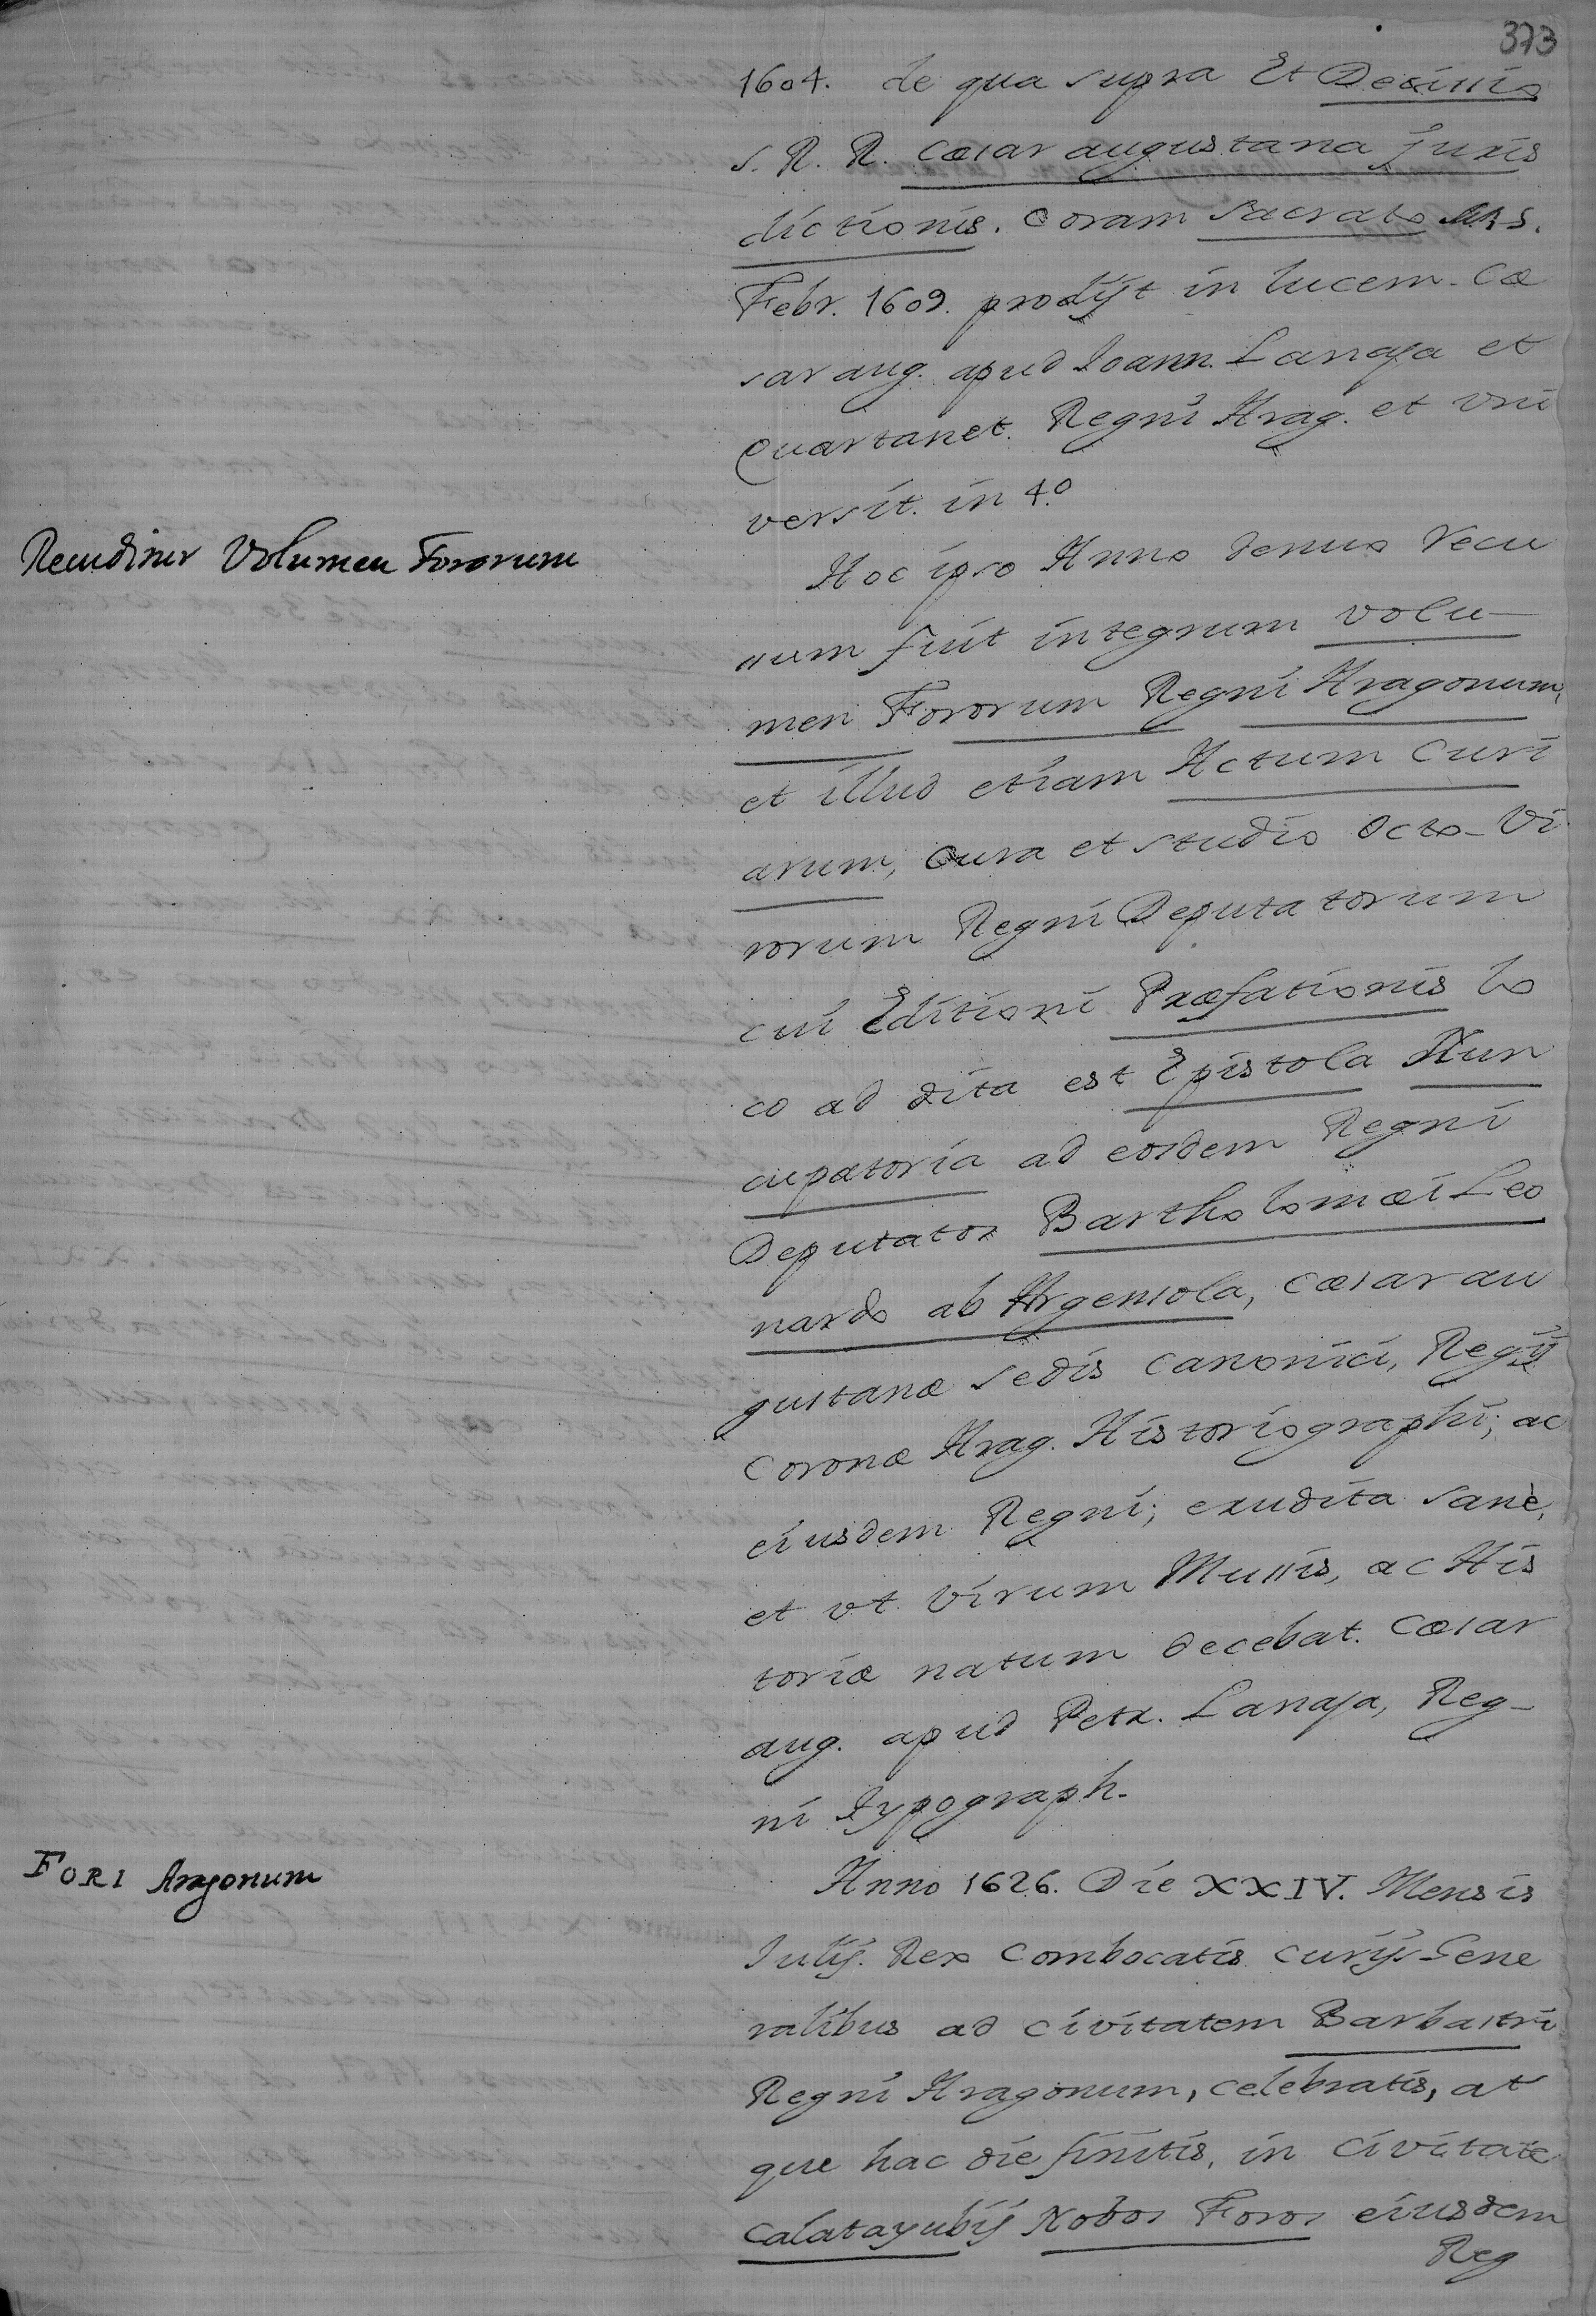 373
1604. de qua supra Et Decissis
S. R. R. Cæsaraugustana Juris
dictionis. Coram Sacrato
Febr. 1609. prodijt in lucem. Cæ
saraug. apud Ioann. Lanaja et
Quartanet. Regni Arag. et Vni
versit. in 4º
Recuditur Volumen Fororum
Hoc ipso Anno denuo recu
ssum fuit integrum Volu-
men Fororum Regni Aragonum,
et illud etiam Actum Curi
arum, Cura et studio Octo-Vi
rorum Regni Deputatorum
cui Editioni Præfationis lo
co addita est Epistola Nun
cupatoria ad eosdem Regni
Deputatos Bartholomæi Leo
nardo ab Argensola, Cæsarau
gustanæ Sedis Canonici, Regij
Coronæ Arag. Historiographi; ac
eiusdem Regni; erudita sanè,
et vt Virum Mussis, ac His
toriæ natum decebat. Cæsar
aug. apud Petr. Lanaja, Reg-
ni Typograph.
FORI Aragonum
Anno 1626. Die XXIV. Mensis
Iulij. Rex Combocatis Curijs Gene
ralibus ad Civitatem Barbastri
Regni Aragonum, celebratis, at
que hac die finitis, in Civitate
Calatayubij Nobos Foros eiusdem
Reg